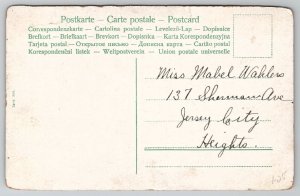 Postkarte – Carte postale – Postcard
Correspondenzkarte – Cartolina postale – Levelező-Lap – Dopisnice
Brefkort – Briefkaart – Brevkort – Dopisnica – Karta Korespondencyjna
Tarjeta postal – Открытое письмо – Дописна карта – Cartão postal
Korespondenční lístek – Weltpostverein – Union postale universelle
Miss Mabel Wahlers
137 Sherman Ave
Jersey City
Heights.